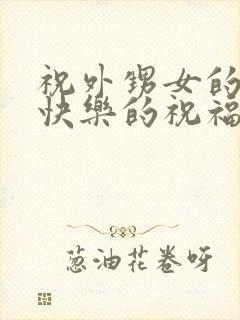 祝外甥女的
快樂的祝福
葱油花卷呀